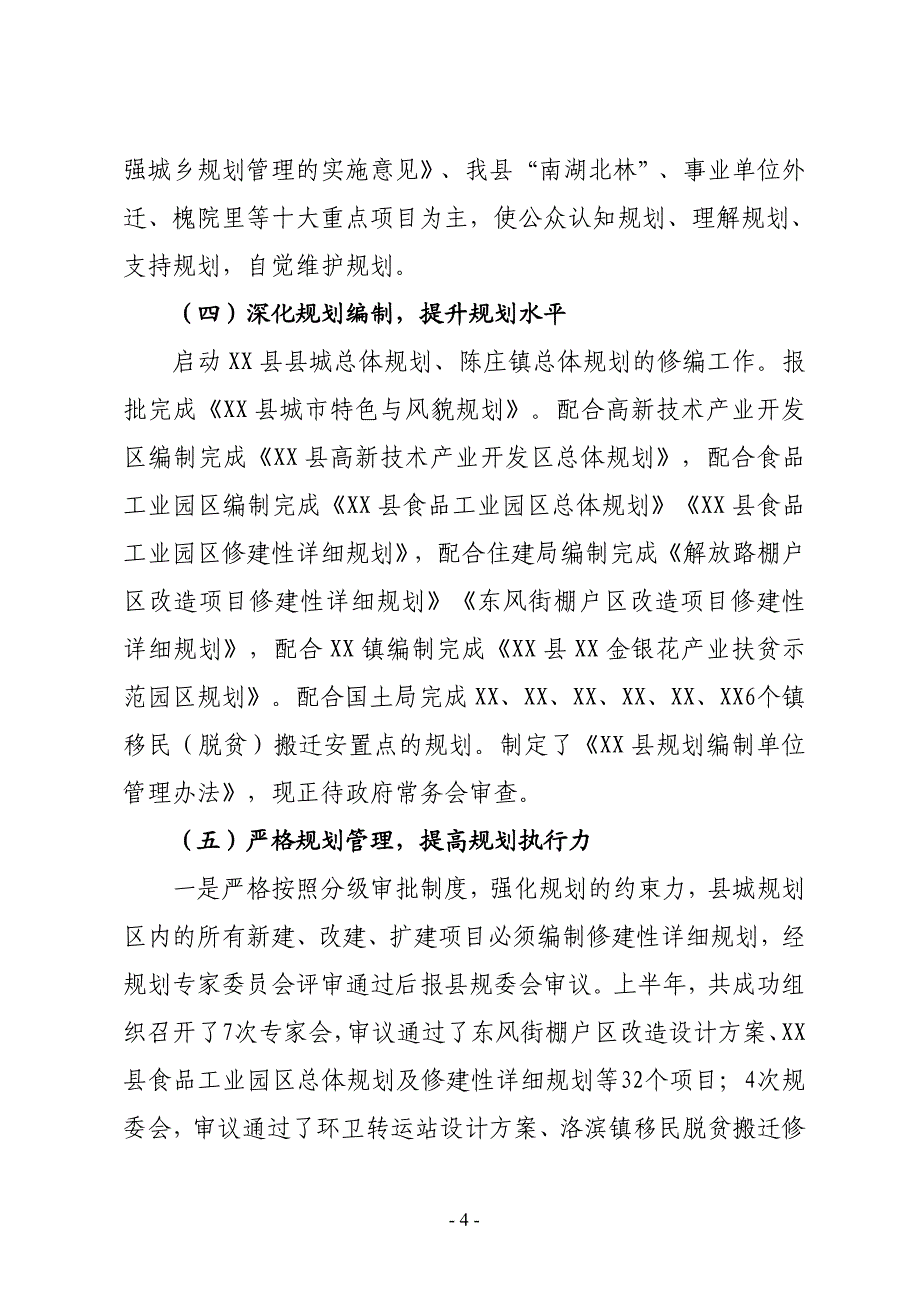 强城乡规划管理的实施意见》、我县“南湖北林”、事业单位外
迁、槐院里等十大重点项目为主，使公众认知规划、理解规划、
支持规划，自觉维护规划。
（四）深化规划编制，提升规划水平
启动 XX 县县城总体规划、陈庄镇总体规划的修编工作。报
批完成《XX 县城市特色与风貌规划》。配合高新技术产业开发
区编制完成《XX 县高新技术产业开发区总体规划》，配合食品
工业园区编制完成《XX 县食品工业园区总体规划》《XX 县食品
工业园区修建性详细规划》，配合住建局编制完成《解放路棚户
区改造项目修建性详细规划》《东风街棚户区改造项目修建性
详细规划》，配合 XX 镇编制完成《XX 县 XX 金银花产业扶贫示
范园区规划》。配合国土局完成 XX、XX、XX、XX、XX、XX6个镇
移民（脱贫）搬迁安置点的规划。制定了《XX 县规划编制单位
管理办法》，现正待政府常务会审查。
（五）严格规划管理，提高规划执行力
一是严格按照分级审批制度，强化规划的约束力，县城规划
区内的所有新建、改建、扩建项目必须编制修建性详细规划，经
规划专家委员会评审通过后报县规委会审议。上半年，共成功组
织召开了7次专家会，审议通过了东风街棚户区改造设计方案、XX
县食品工业园区总体规划及修建性详细规划等32个项目；4次规
委会，审议通过了环卫转运站设计方案、洛滨镇移民脱贫搬迁修
- 4 -